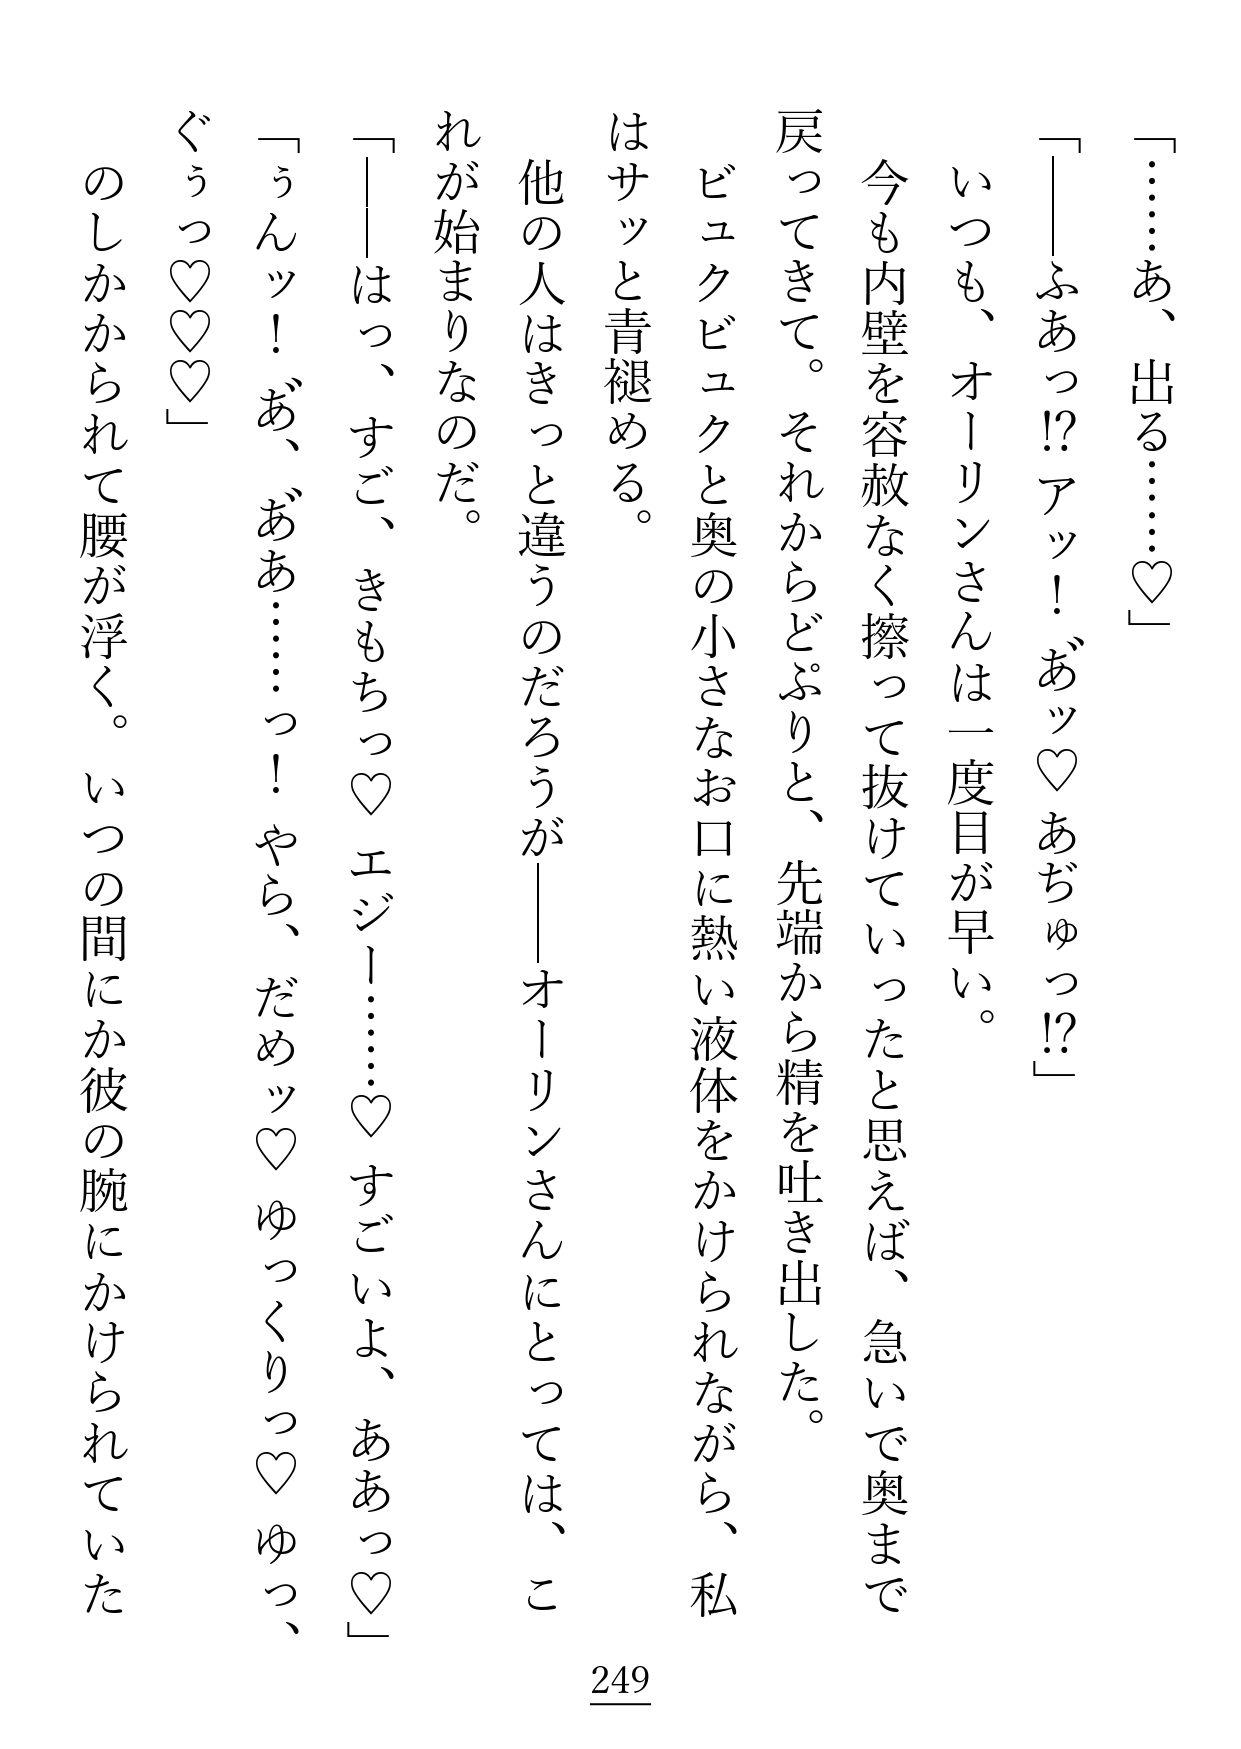 「……あ、出る……♡」
「――ふあっ⁉ アッ！ あ゙ッ♡ あぢゅっ⁉」
　いつも、オーリンさんは一度目が早い。
　今も内壁を容赦なく擦って抜けていったと思えば、急いで奥まで
戻ってきて。それからどぷりと、先端から精を吐き出した。
　ビュクビュクと奥の小さなお口に熱い液体をかけられながら、私
はサッと青褪める。
　他の人はきっと違うのだろうが――オーリンさんにとっては、こ
れが始まりなのだ。
「――はっ、すご、きもちっ♡ エジー……♡ すごいよ、ああっ♡」
「ぅんッ！ あ゙、あ゙あ……っ！ やら、だめッ♡ ゆっくりっ♡ ゆっ、
ぐぅっ♡♡♡」
　のしかかられて腰が浮く。いつの間にか彼の腕にかけられていた
249